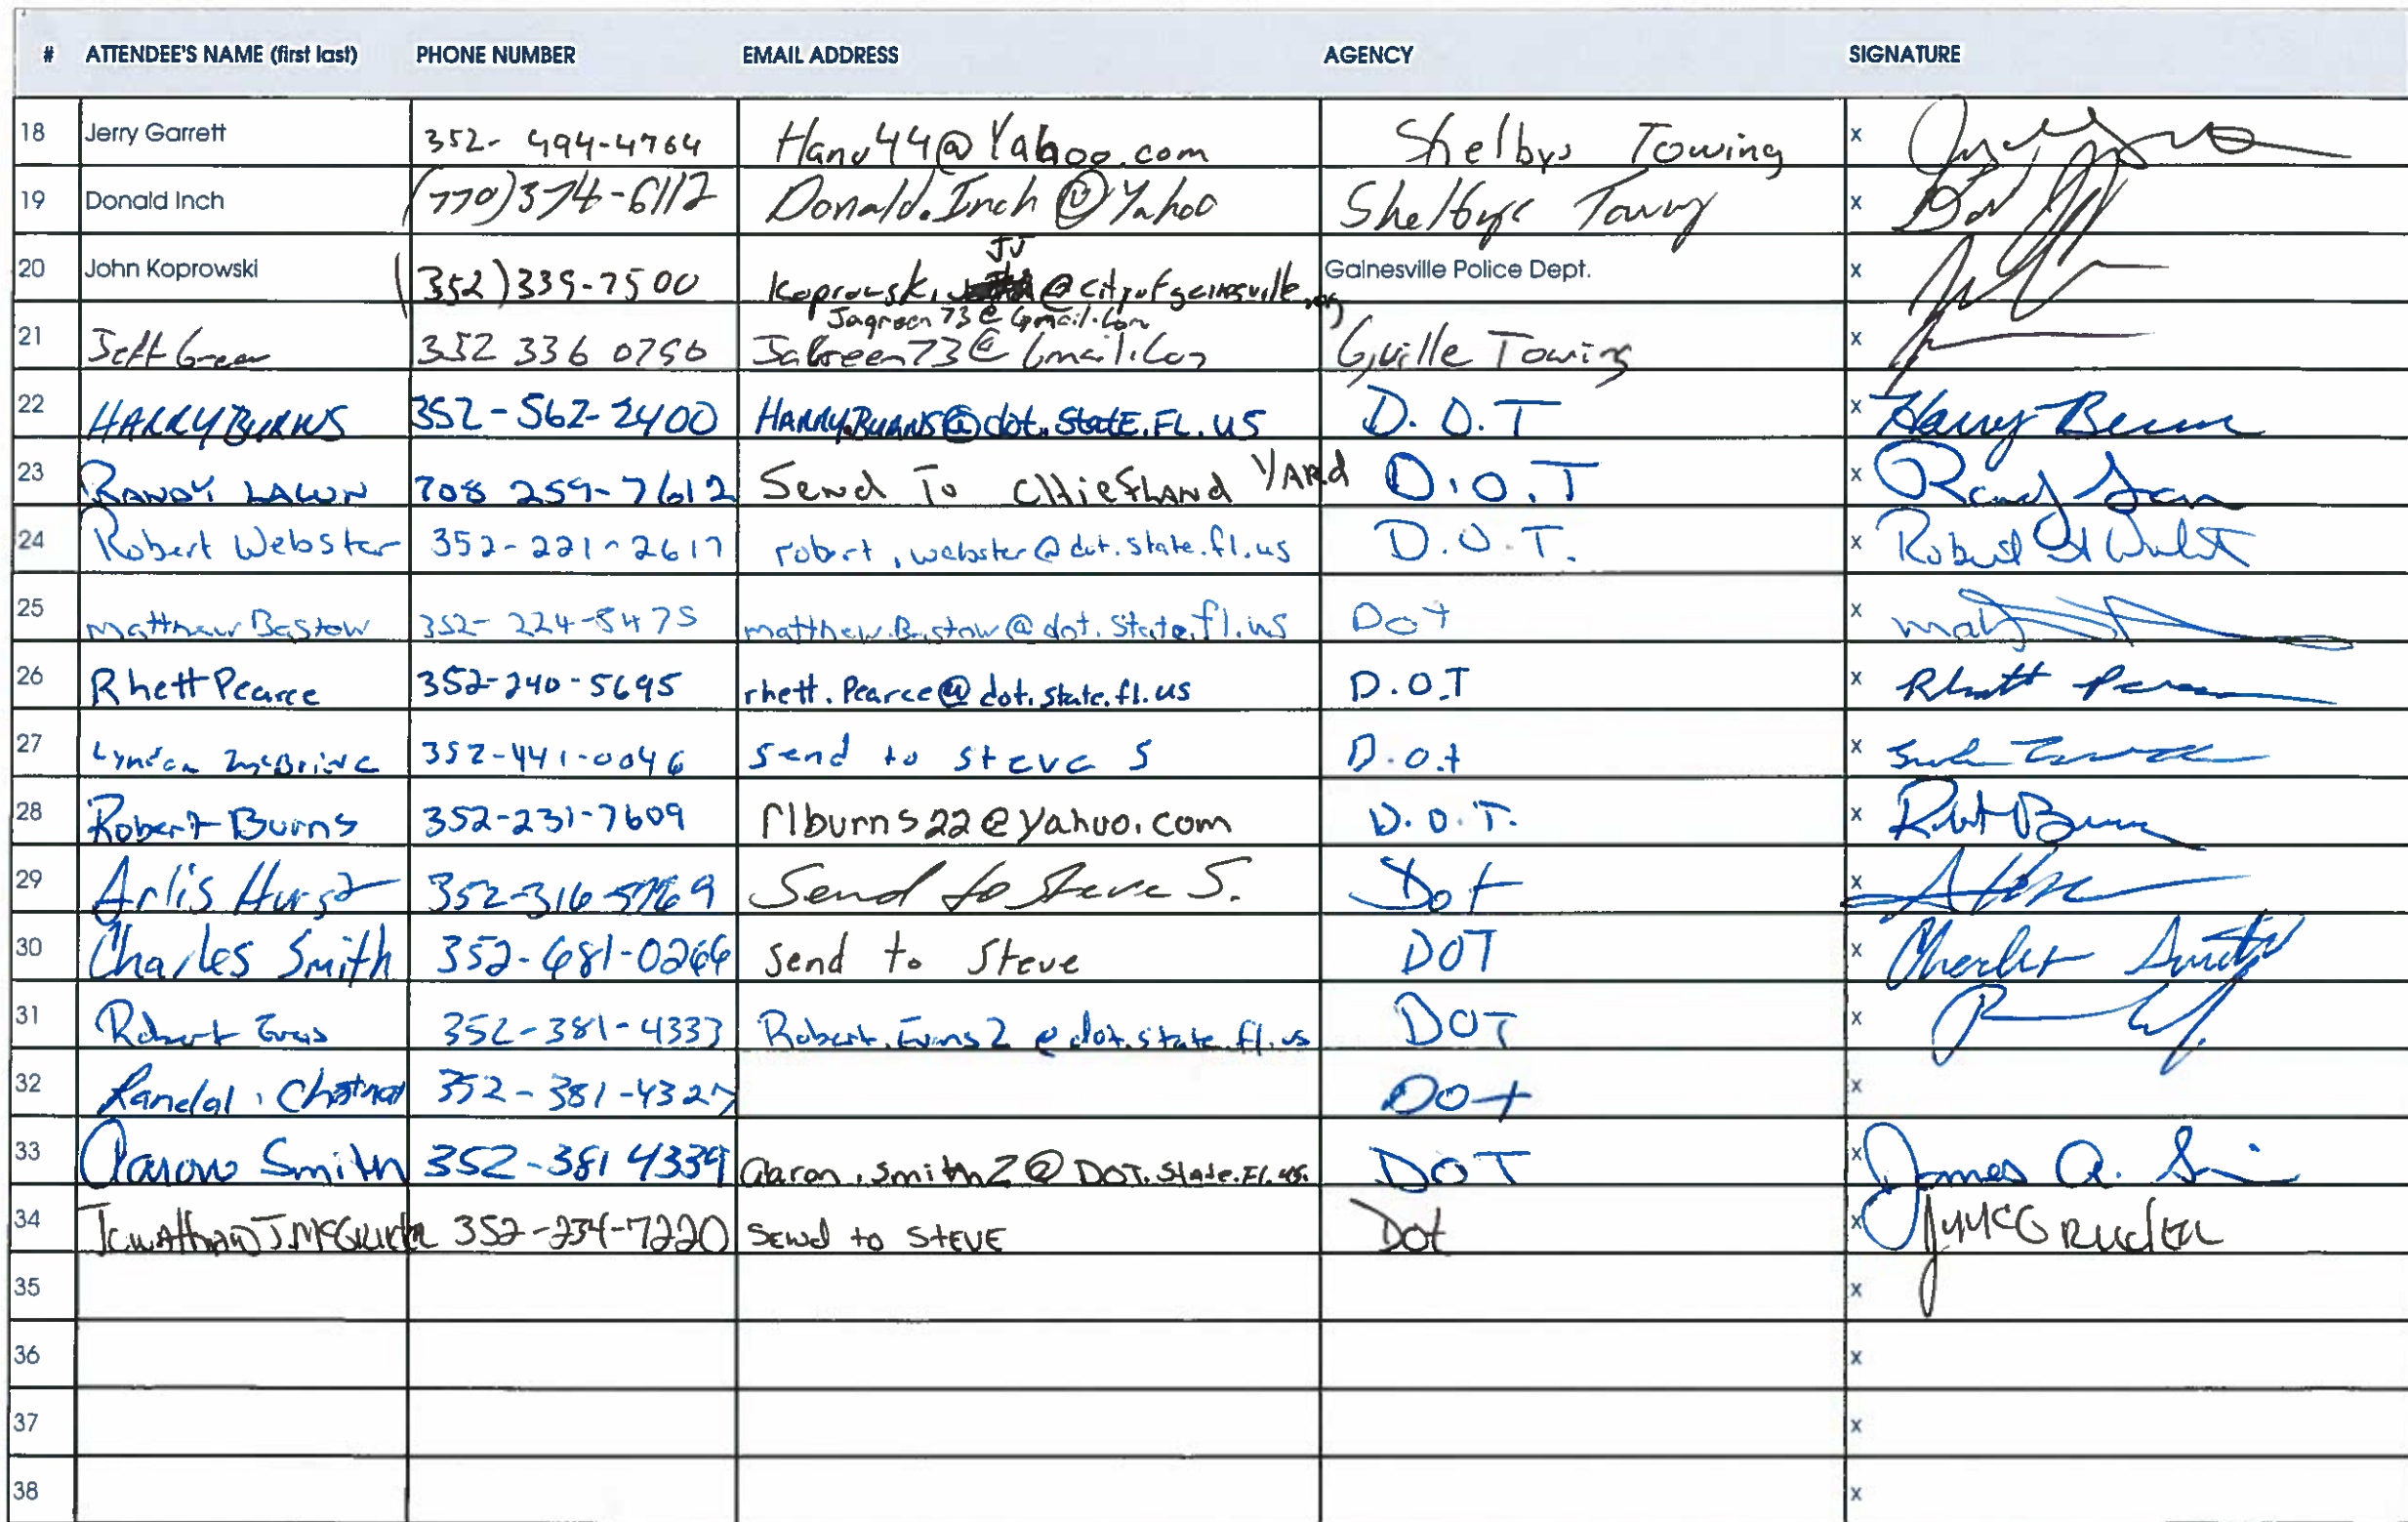 # ATTENDEE'S NAME (first last) PHONE NUMBER EMAIL ADDRESS AGENCY SIGNATURE
18 Jerry Garrett 352- 494-4764 Hanu44@Yahoo.com Shelbys Towing x
19 Donald Inch (770)374-6112 Donald.Inch@Yahoo Shelbys Towing x
JJ
20 John Koprowski (352)339-7500 Koprowski @cityofgainesville.org Gainesville Police Dept. x
Jagreen73@Gmail.Com
21 Jeff Green 352 336 0750 JaGreen73@Gmail.Com Gville Towing x
22 HARRY BURNS 352-562-2400 HARRY.BURNS@dot.StatE.FL.US D.O.T x Harry Burns
23 RANDY LAWN 708 259-7612 Send To CHiefLAND YARd D.O.T x Randy
24 Robert Webster 352-221-2617 robert.webster@dot.state.fl.us D.O.T. x Robert Webster
25 Matthew Bastow 352-224-5475 matthew.Bastow@dot.State.fl.us Dot x
26 Rhett Pearce 352-240-5695 rhett.Pearce@dot.state.fl.us D.O.T x Rhett Pearce
27 Lyndon McBride 352-441-0046 Send to steve S D.o.t x
28 Robert Burns 352-231-7609 rlburns22@yahoo.com D.O.T. x
29 Arlis Hurst 352-316-5769 Send to Steve S. Dot x
30 Charles Smith 352-681-0266 Send to Steve DOT x Charles Smith
31 Robert Evans 352-381-4333 Robert.Evans2@dot.state.fl.us DOT x
32 Randal 352-381-4327 Dot x
33 Aaron Smith 352-381 4339 aaron.smith2@DOT.State.Fl.us. DOT x James A.
34 JonAthan J McGruder 352-234-7220 SEnd to STEVE Dot x JJ McGRudER
35 x
36 x
37 x
38 x